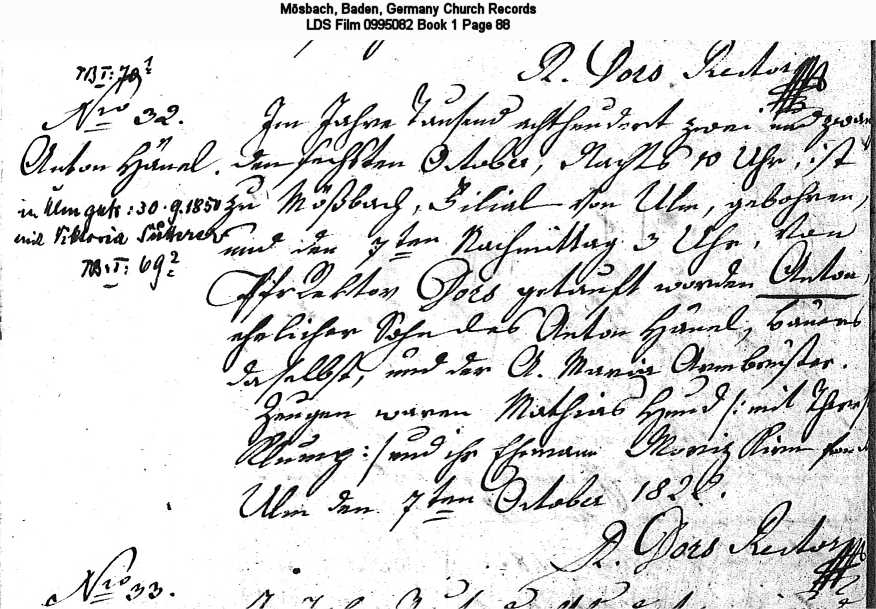 Mösbach, Baden, Germany Church Records
LDS Film 0995082 Book 1 Page 88
R. Dors Rector
TB I: 79¹
Nro 32.
Anton Hänel.
in Ulm getr: 30.9.1850
mit Viktoria Sutterer
TB: I: 69²
Im Jahre Tausend achthundert zwei und zwan
den sechsten October, Nachts 10 Uhr, ist
zu Mößbach, Filial von Ulm, gebohren,
und den 7ten Nachmittag 3 Uhr, von
Dors getauft worden Anton,
ehelicher Sohn des Anton Hänel, Bauers
daselbst, und der A. Maria Armbruster.
Zeugen waren Mathias Hund /: mit
Klump :/ und ihr Ehemann Moriz
Ulm den 7ten October 1822.
R. Dors Rector
Nro 33.